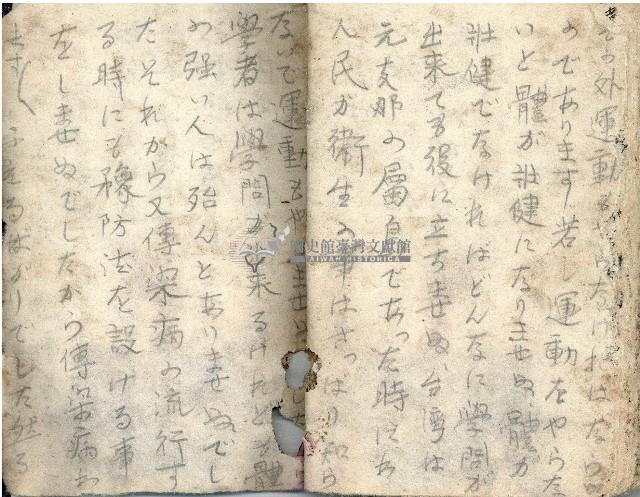 その外運動もやらなければならぬ
のであります若 運動をやらな
いと體が壯健になりませぬ體が
壯健でなければどんなに學問が
出来ても役に立ちませぬ台湾は
元支那の属
であった時にわ
人民が衛生の事はさっぱり知ら
ないで運動もやりませぬ
學者は學問が出来るけれども體
の强い人は殆んとありませぬでし
たそれから又傳染病の流行す
る時にも豫防法を設ける事
をしませぬでしたから傳染病わ
るばかりでした然る
國史館臺灣文獻館
TAIWAN HISTORICA